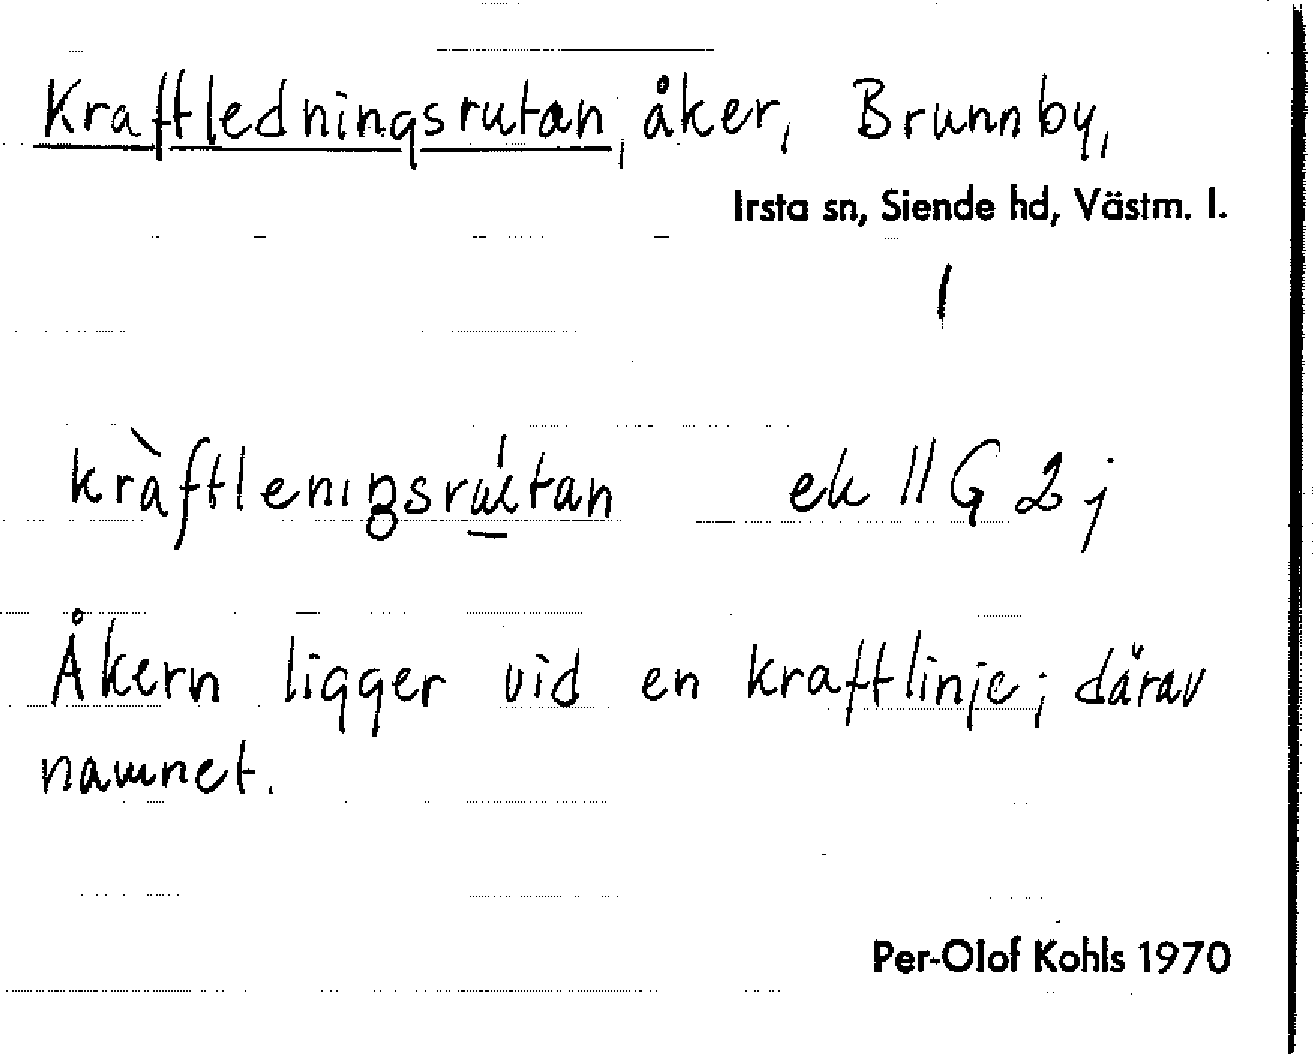 Kraftledningsrutan, åker, Brunnby,
Irsta sn, Siende hd, Västm. l.
1
ek 11 G 2 j
Åkern ligger vid en kraftlinje; därav
namnet.
Per-Olof Kohls 1970